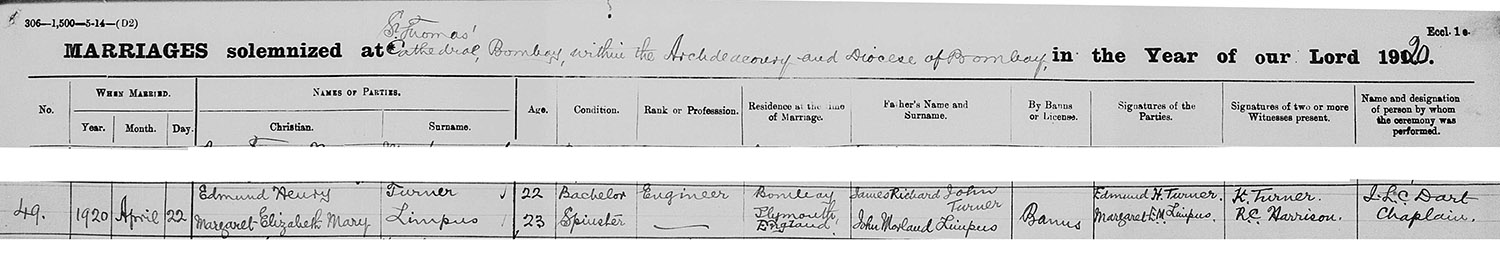 306—1,500—5-14—(D2)
Eccl. 1 e.
St. Thomas'
MARRIAGES solemnized at Cathedral, Bombay, within the Archdeaconry and Diocese of Bombay, in the Year of our Lord 1920.
No. WHEN MARRIED. NAMES OF PARTIES. Age. Condition. Rank or Profession. Residence at the time of Marriage. Father's Name and Surname. By Banns or License. Signatures of the Parties. Signatures of two or more Witnesses present. Name and designation of person by whom the ceremony was performed.
Year. Month. Day. Christian. Surname.
49. 1920 April 22
Edmund Henry Turner 22 Bachelor Engineer Bombay James Richard John Turner Edmund H. Turner. K. Turner. J.L.C. Dart
Margaret Elizabeth Mary Limpus 23 Spinster — Plymouth, England. John Morland Limpus Banns Margaret E.M. Limpus. R.C. Harrison. Chaplain.